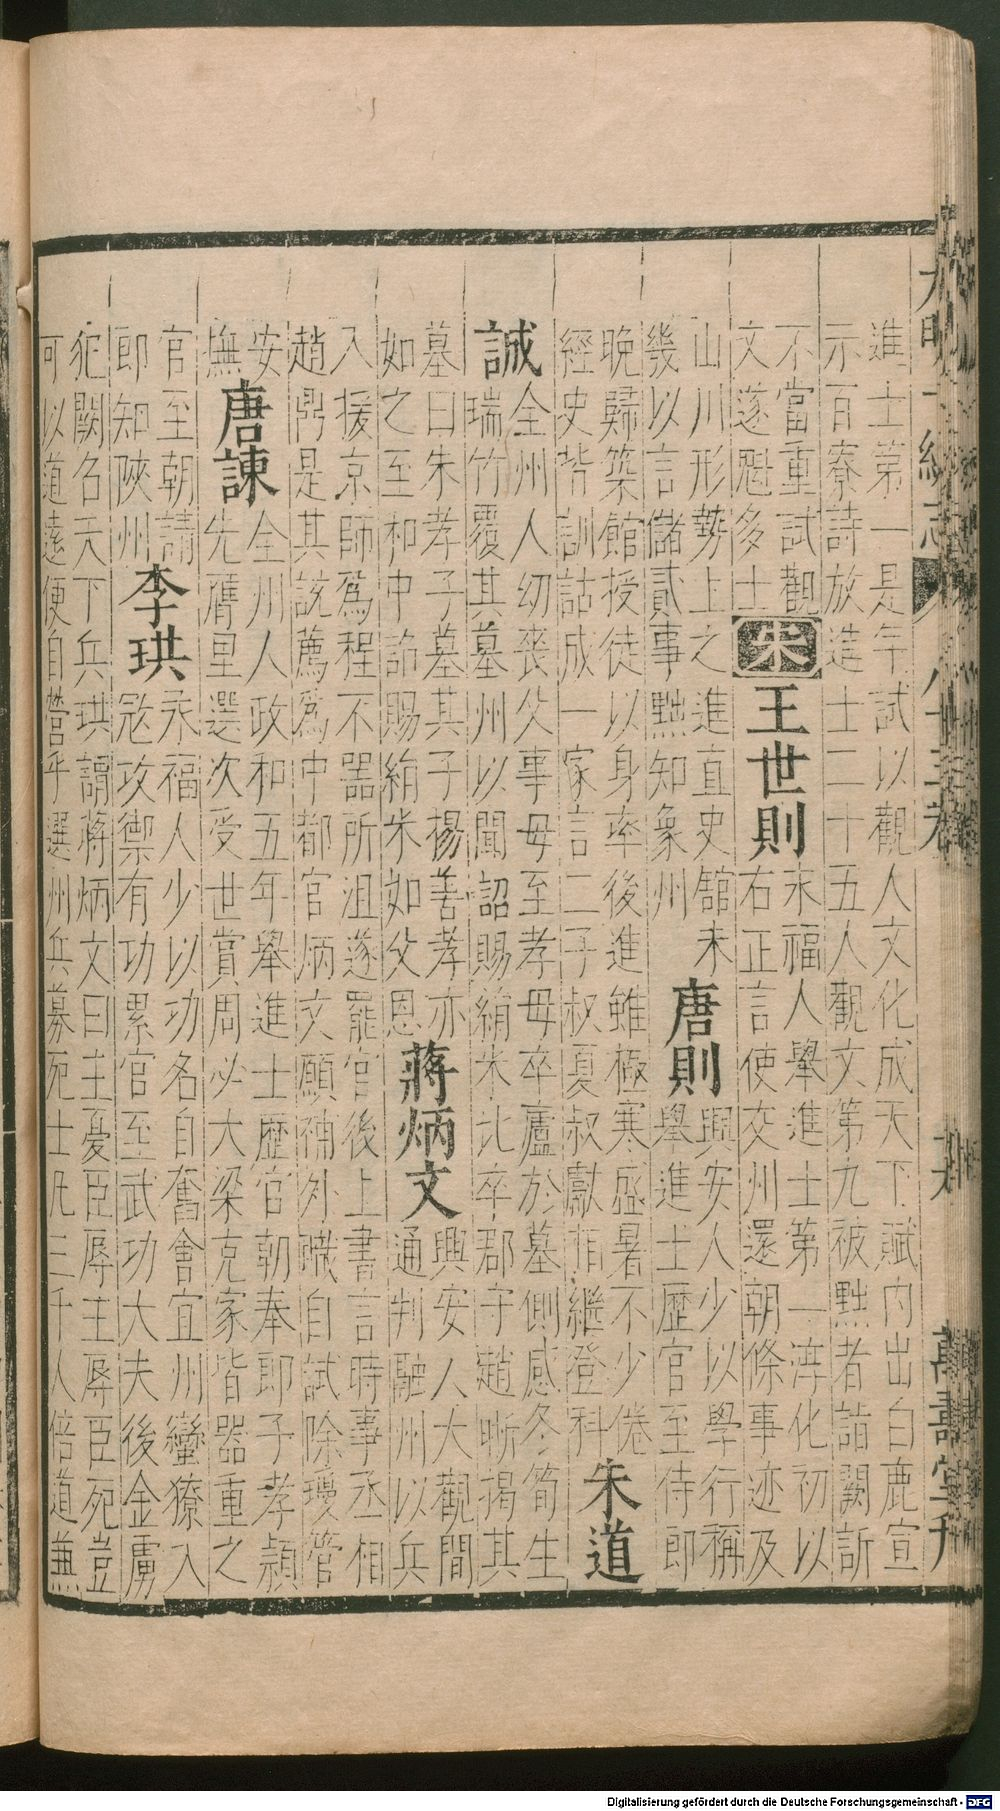 大明一統志 八十三卷 萬壽堂刊
進士第一是年試以觀人文化成天下賦内出白鹿宣
示百寮詩放進士二十五人觀文第九被黜者詣闕訴
不當重試觀
文遂魁多士
宋
王世則
永福人舉進士第一淳化初以
右正言使交州還朝條事迹及
山川形勢上之進直史舘未
幾以言儲貳事黜知象州
唐則
興安人少以學行稱
舉進士歷官至侍郎
晚歸築館授徒以身率後進雖極寒盛暑不少倦
經史皆訓詁成一家言二子叔夏叔獻相繼登科
朱道
誠
全州人幼喪父事母至孝母卒廬於墓側感冬筍生
瑞竹覆其墓州以聞詔賜絹米比卒郡守趙晰揭其
墓曰朱孝子墓其子楊善孝亦
如之至和中詔賜絹米如父恩
蔣炳文
興安人大觀間
通判融州以兵
入援京師爲程不器所沮遂罷官後上書言時事丞相
趙鼎是其說薦爲中都官炳文願補外職自試除瓊管
安
撫
唐諫
全州人政和五年舉進士歷官朝奉郎子孝頴
先膺里選次受世賞周必大梁克家皆器重之
官至朝請
郎知陝州
李珙
永福人少以功名自奮會宜州蠻獠入
冦攻禦有功累官至武功大夫後金虜
犯闕名天下兵珙謂蔣炳文曰主憂臣辱主辱臣死豈
可以道遠便自營乎選州兵募死士凡三千人倍道兼
Digitalisierung gefördert durch die Deutsche Forschungsgemeinschaft - DFG